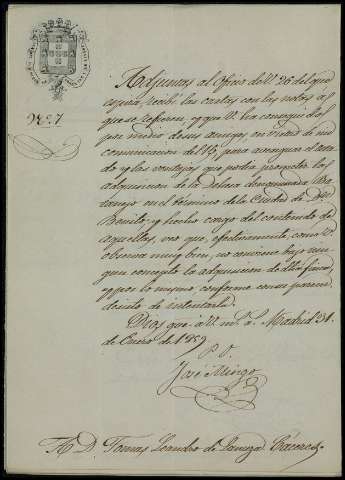 2237
Adjuntas al Oficio de V. 26 del que
espira, recibí las cartas con las notas á
que se refieren, y que V. ha conseguido
por medio de sus amigos en virtud de mi
comunicacion del 15, para asegurar el esta-
do y las ventajas que podria prometer la
adquisicion de la Dehesa denominada
en el término de la Ciudad de Dn
Benito; y hecho cargo del contenido de
aquellas, veo que, efectivamente, como V.
observa muy bien, no conviene bajo nin-
gun concepto la adquisicion de dha finca,
y por lo mismo conforme con su parecer
desisto de intentarla.
Dios gue. á V. ms. as. Madrid 31
de Enero de 1859
P. P.
José Mingo
Sr. D. Tomas Leandro de Cáceres.